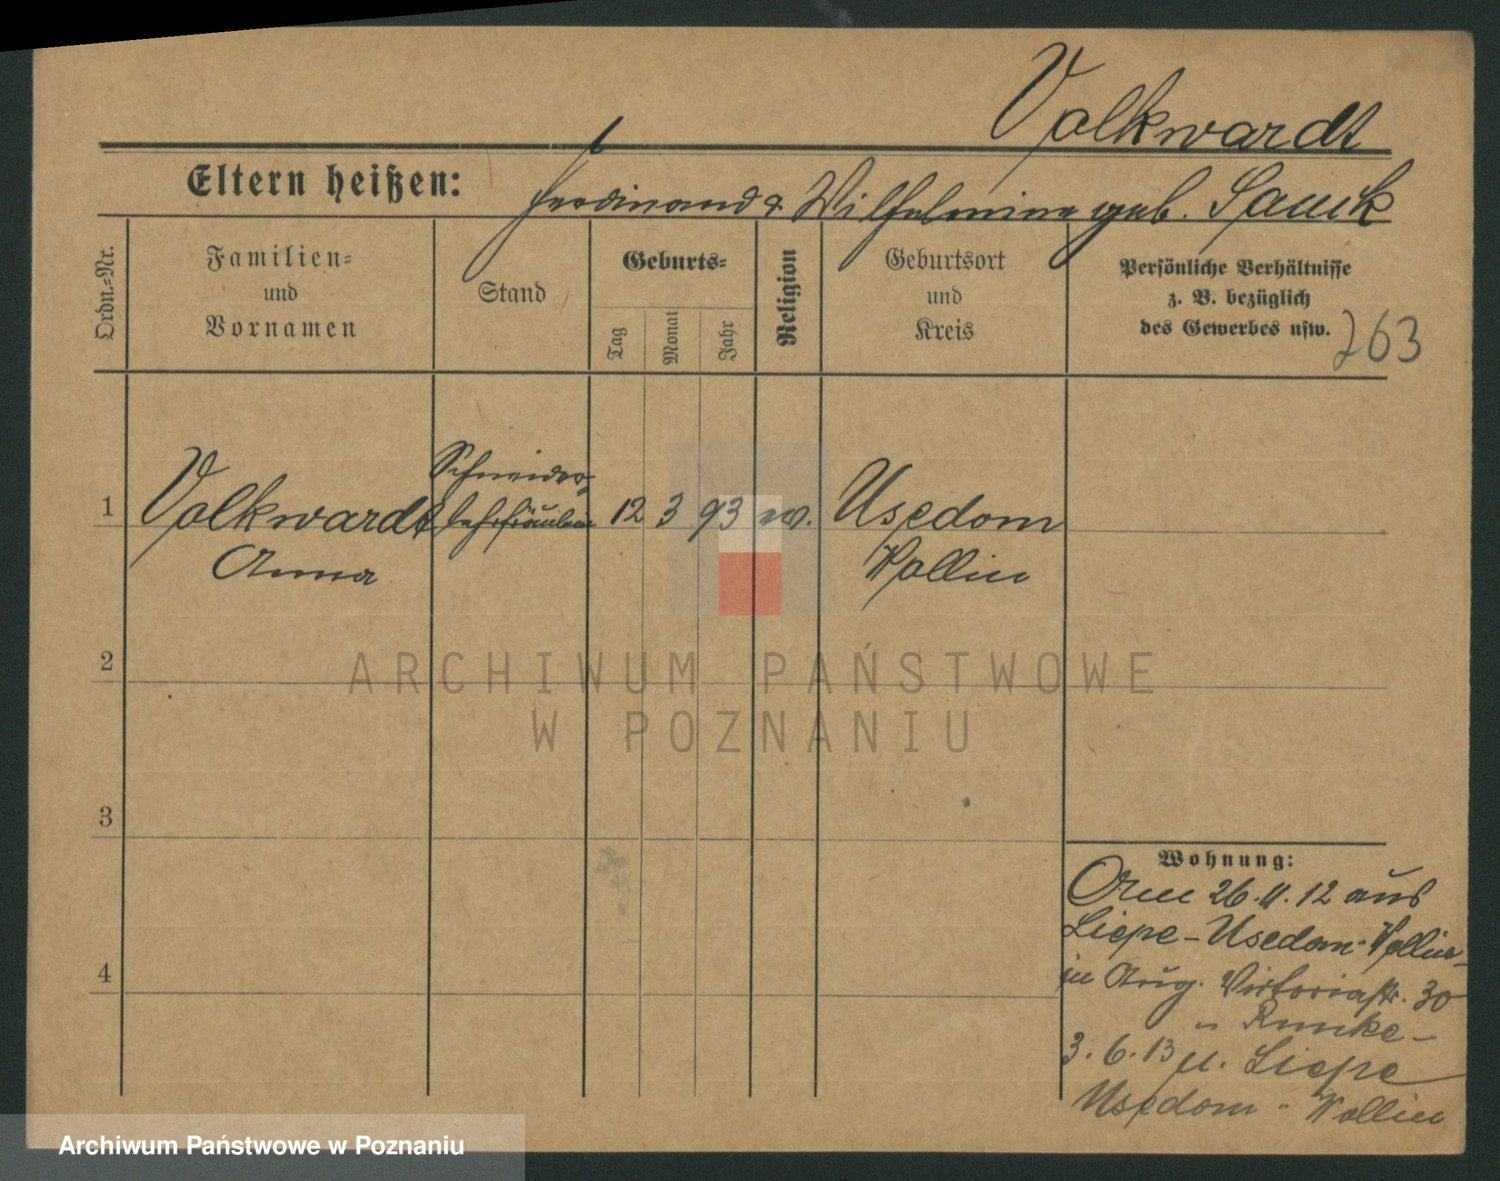 Volkwardt
Eltern heißen: Ferdinand & Wilhelmine geb. Sauck
Ordn.-Nr.
Familien-
und
Vornamen
Stand
Geburts-
Tag
Monat
Jahr
Religion
Geburtsort
und
Kreis
Persönliche Verhältnisse
z. B. bezüglich
des Gewerbes usw.
263
Schneider-
1 Volkwardt lehrfräulein 12 3 93 ev. Usedom
Anna Wollin
2
ARCHIWUM PAŃSTWOWE
W POZNANIU
3
4
Wohnung:
26.11.12 aus
Liepe-Usedom-Wollin-
in Aug. Victoriastr. 30
Runke-
3.6.13 n. Liepe
Usedom-Wollin
Archiwum Państwowe w Poznaniu